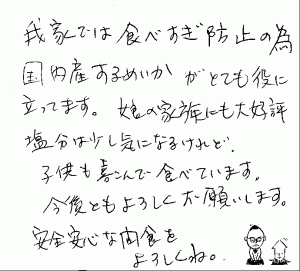 我家では食べすぎ防止の為
国内産するめいか がとても役に
立ってます。娘の家族にも大好評
塩分は少し気になるけれど、
子供も喜こんで食べています。
今後ともよろしくお願いします。
安全安心な間食を
よろしくね。